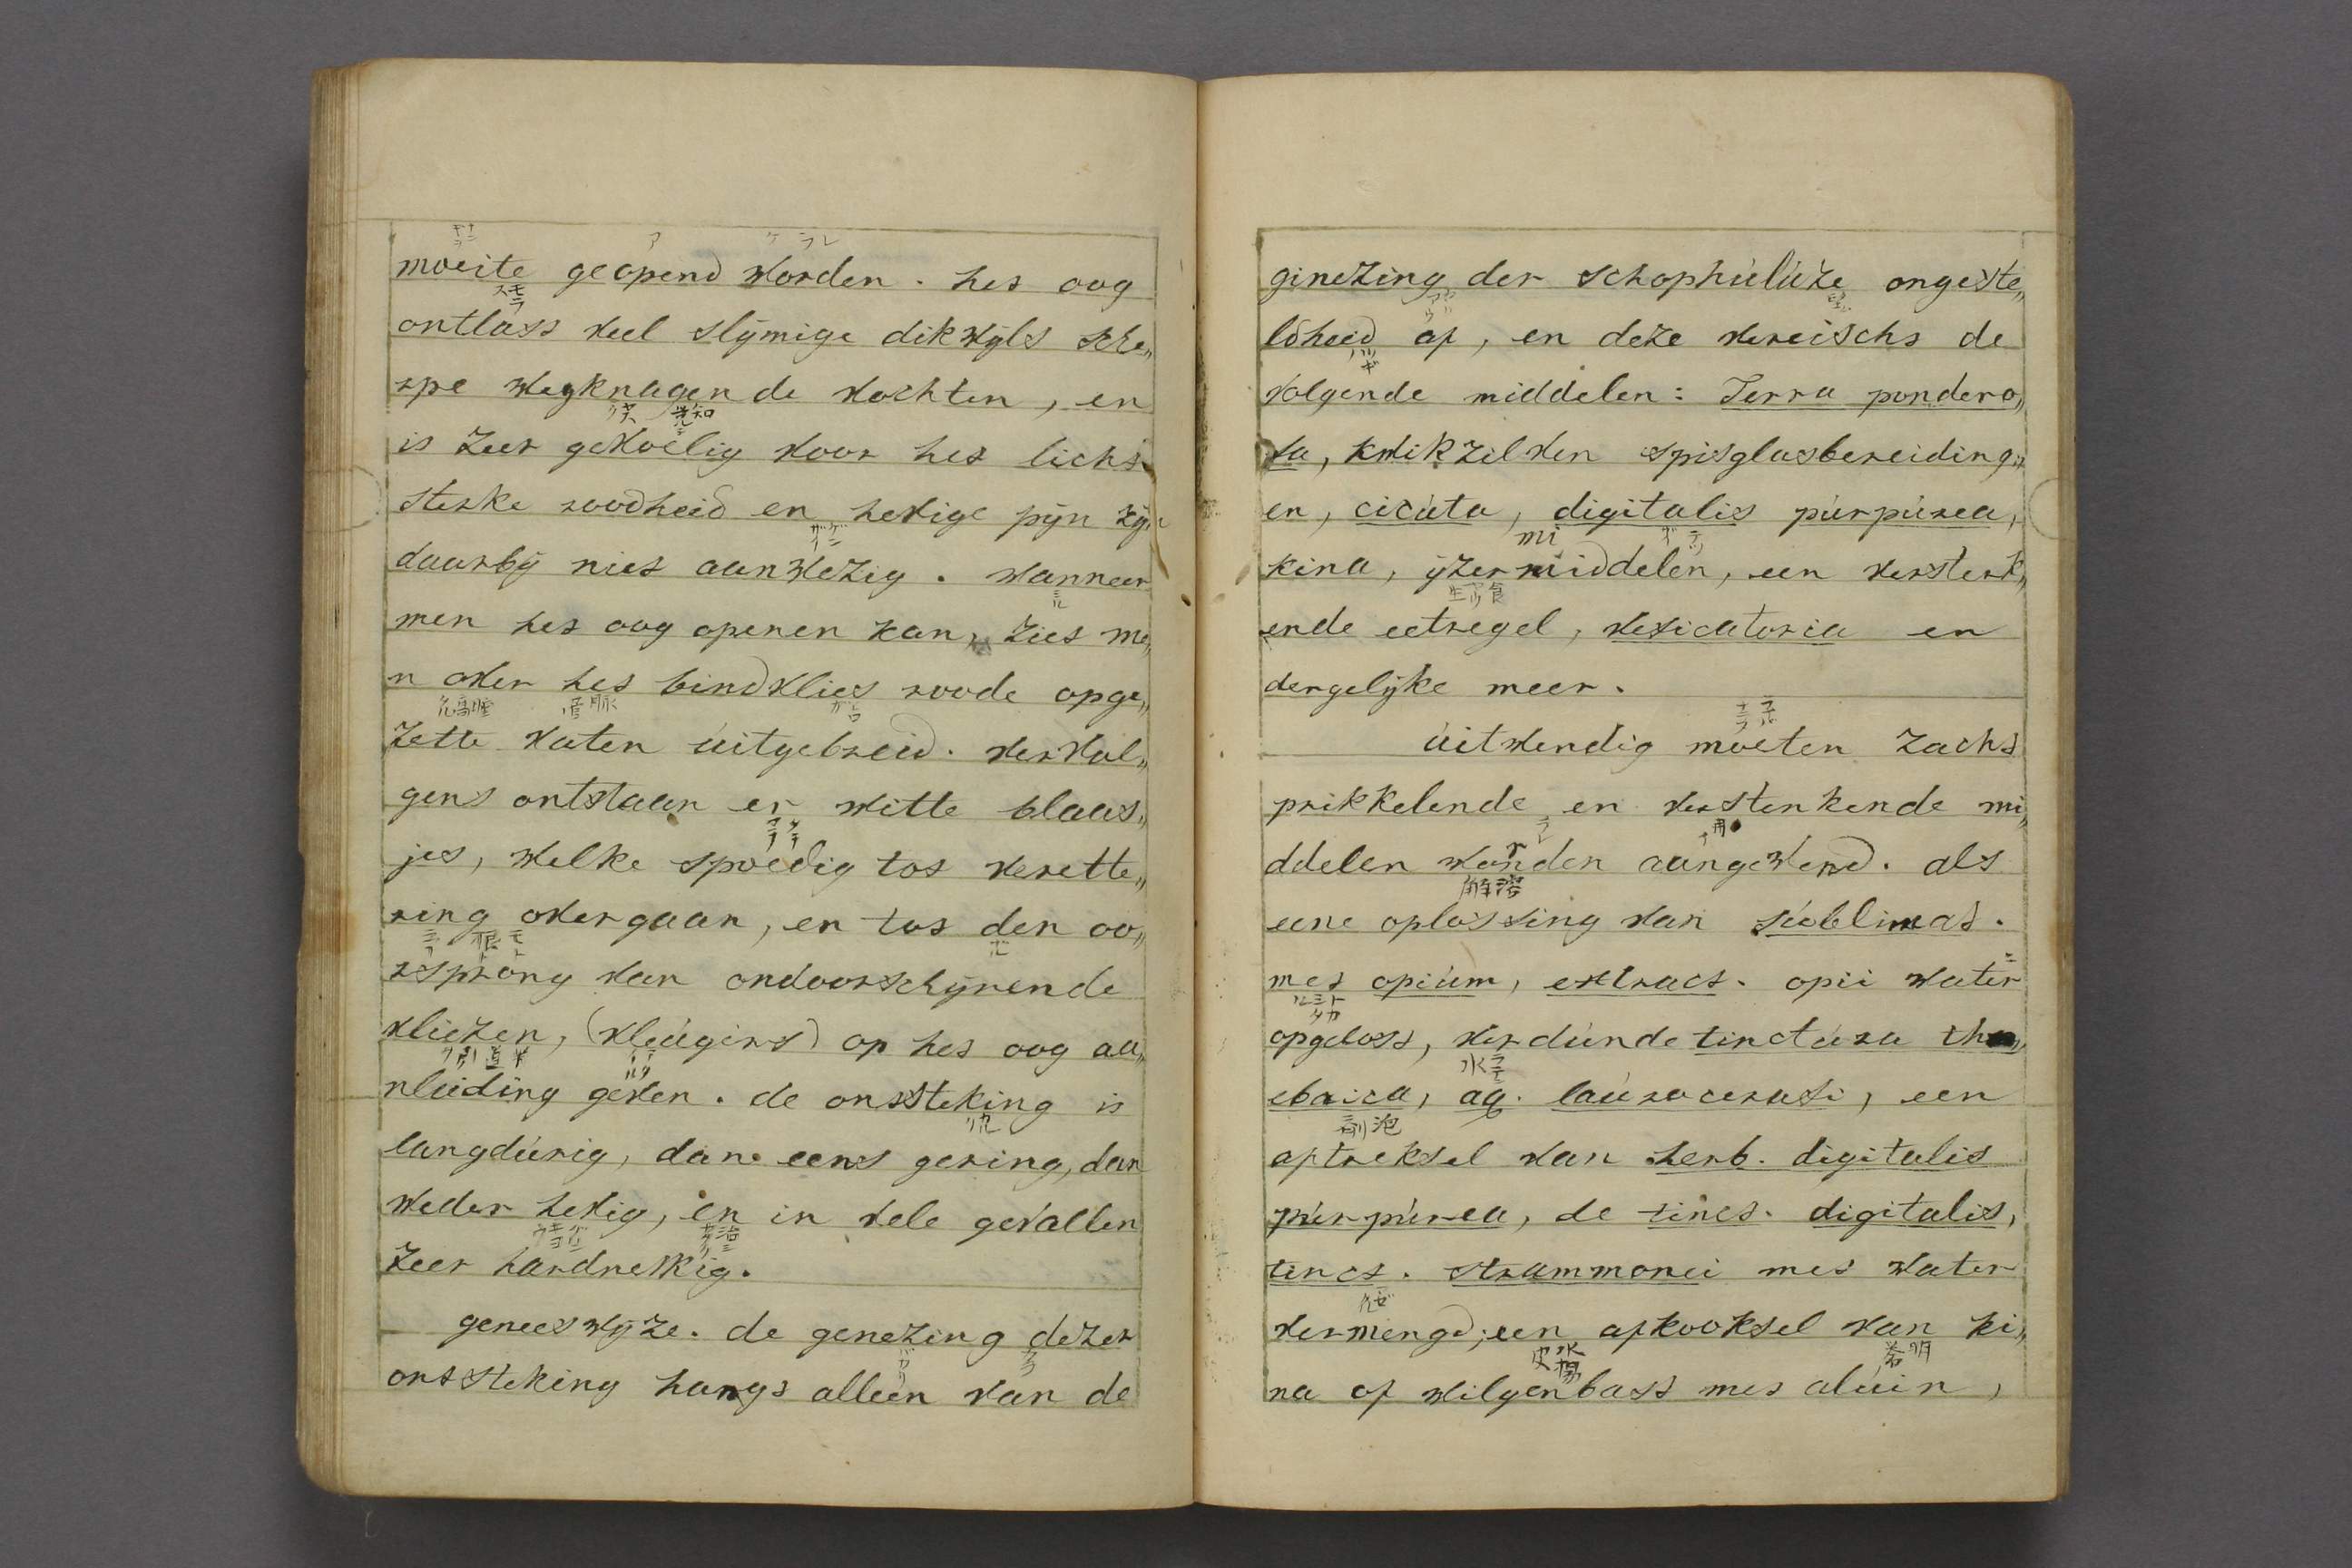 moeite geopend worden. het oog
ontlast veel slijmige dikwijls sche„
rpe wegknagende vochten, en
is zeer gevoelig voor het licht
sterke roodheid en hevige pijn zijn
daarbij niet aanwezig. wanneer
men het oog openen kan, ziet me„
n over het bindvlies roode opge„
zette vaten úitgebreid. vervol„
gens ontstaan er witte blaas„
jes, welke spoedig tot verette„
ring overgaan, en tot den oo„
rsprong van ondoorschijnende
vliezen, (vleúgins) op het oog aa„
nleiding geven. de ontsteking is
langdúrig, dan eens gering, dan
weder hevig, en in vele gevallen
zeer hardnekkig.
geneeswijze. de genezing dezer
ontsteking hangt alleen van de
ginezing der schophúlúze ongeste„
ldheid af, en deze vereischt de
volgende middelen: Terra pondero„
sa, kwikzilver spisglasbereiding„
en, cicúta, digitalis púrpúrea,
mi
kina, ijzermiddelen, een versterk„
ende eetregel, vesicatoria en
dergelijke meer.
úitwendig moeten zacht
prikkelende en verstenkende mi„
r
ddelen wonden aangewend. als
解溶
eene oplossing van súblimat.
met opiúm, extract. opii water
opgelost, verdúnde tinctúra the„
ebaica, aq. laúrocerasi, een
aftreksel van herb. digitalis
púrpúrea, de tinct. digitalis,
tinct. strammonii met water
vermengd; een afkooksel van ki„
na of wilgenbast met alúin,